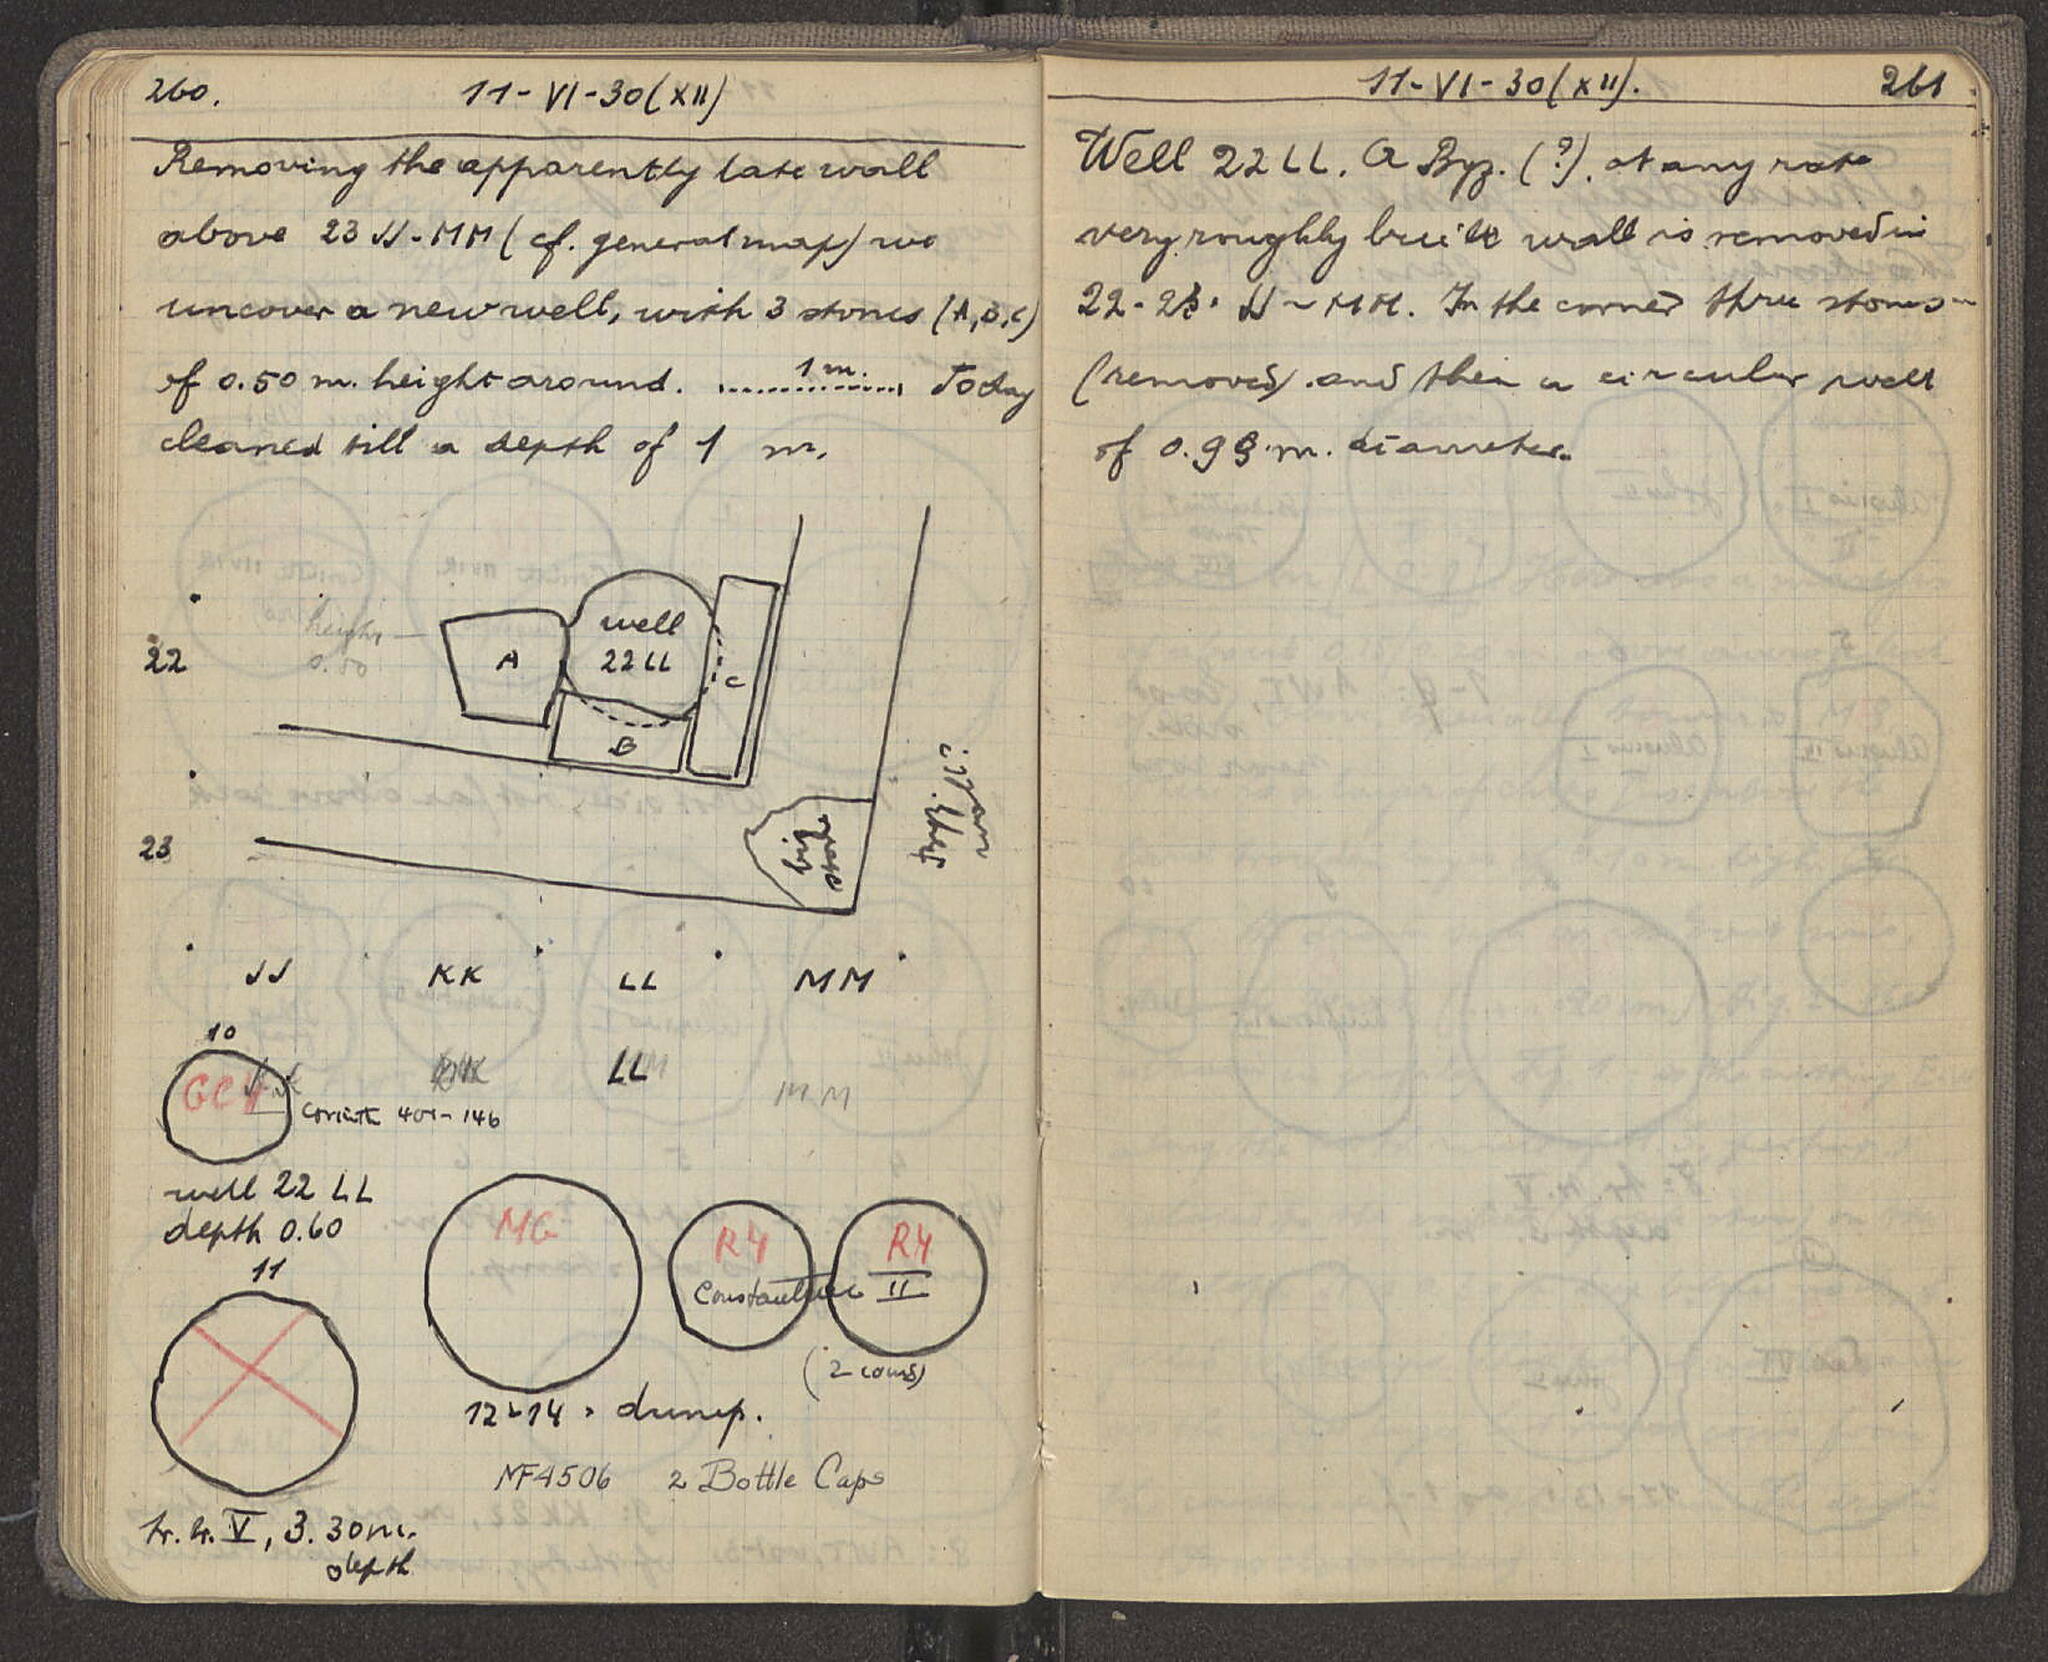 260.
11-VI-30(XII)
Removing the apparently late wall
above 23 JJ-MM (cf. general map) we
uncover a new well, with 3 stones (A,B,C)
of 0.50 m. height around. 1 m. Today
cleaned till a depth of 1 m.
height
0.50
22
A
well
22 LL
C
B
23
big
stone
JJ
KK
LL
MM
10
GC4
LL
MM
Corinth 401-146
well 22 LL
depth 0.60
11
MG
R4
Constantine
R4
II
(2 coins)
12-14 = dump.
MF4506 2 Bottle Caps
tr. tr. V, 3.30 m.
depth
11-VI-30(XII).
261
Well 22 LL. A Byz. (?), at any rate
very roughly built wall is removed in
22-23. JJ-MM. In the corner three stones
(removed) and then a circular well
of 0.98 m. diameter.